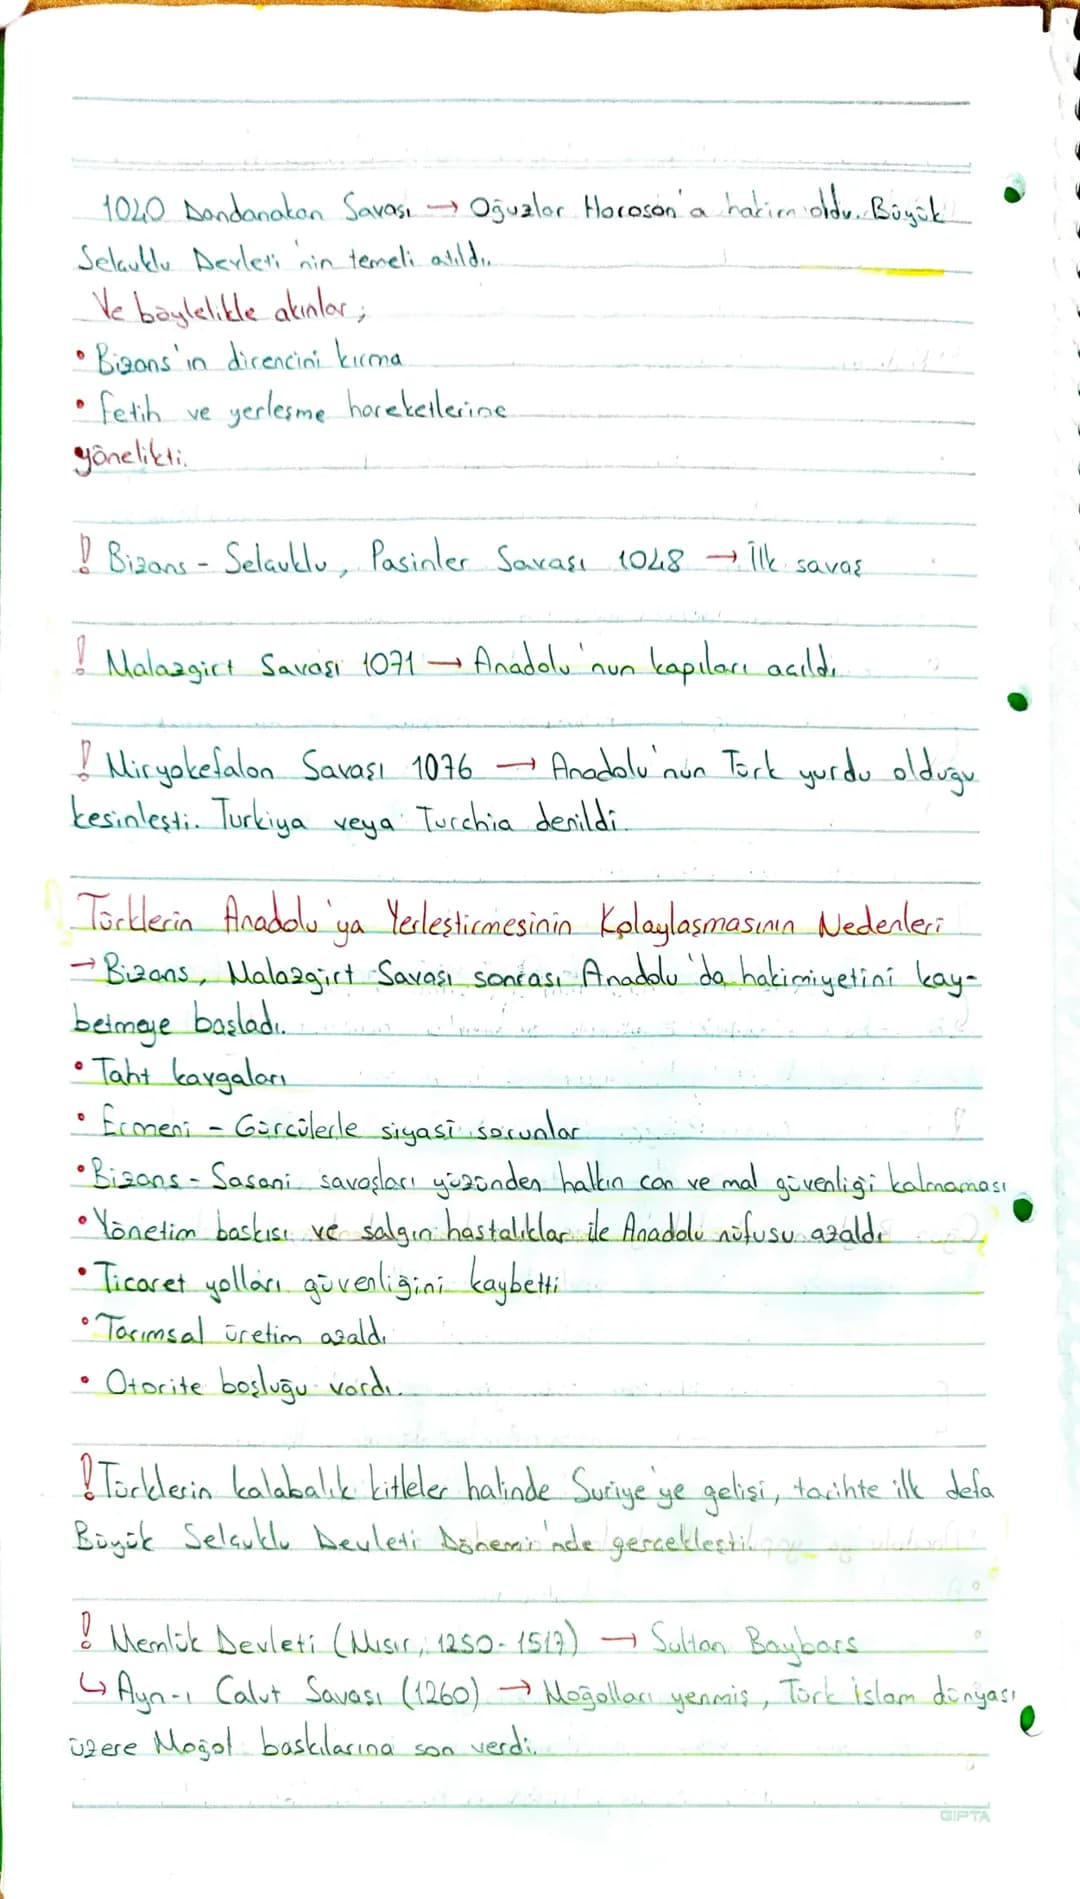 1040 Dandanakan Savaşı → Oğuzlar Horosan'a hakim oldu. Büyük
Selçuklu Devleti'nin temeli atıldı.
Ve böylelikle akınlar;
• Bizans'ın direncini kırma
• Fetih ve yerleşme hareketlerine
yönelikti.
! Bizans - Selçuklu, Pasinler Savaşı 1048 → İlk savaş
! Malazgirt Savaşı 1071 → Anadolu'nun kapıları açıldı.
! Miryokefalon Savaşı 1076 → Anadolu'nun Türk yurdu olduğu
kesinleşti. Turkiya veya Turchia denildi.
Türklerin Anadolu'ya Yerleştirmesinin Kolaylaşmasının Nedenleri
→ Bizans, Malazgirt Savaşı sonrası Anadolu'da hakimiyetini kay-
betmeye başladı.
• Taht kavgaları
• Ermeni - Gürcülerle siyasi sorunlar
• Bizans - Sasani savaşları yüzünden halkın can ve mal güvenliği kalmaması
• Yönetim baskısı ve salgın hastalıklar ile Anadolu nüfusu azaldı
• Ticaret yolları güvenliğini kaybetti
• Tarımsal üretim azaldı
• Otorite boşluğu vardı.
! Türklerin kalabalık kitleler halinde Suriye'ye gelişi, tarihte ilk defa
Büyük Selçuklu Devleti Dönemi'nde gerçekleşti.
! Memlük Devleti (Mısır, 1250-1517) → Sultan Baybars
↳ Ayn-ı Calut Savaşı (1260) → Moğolları yenmiş, Türk islam dünyası
üzere Moğol baskılarına son verdi.
GIPTA